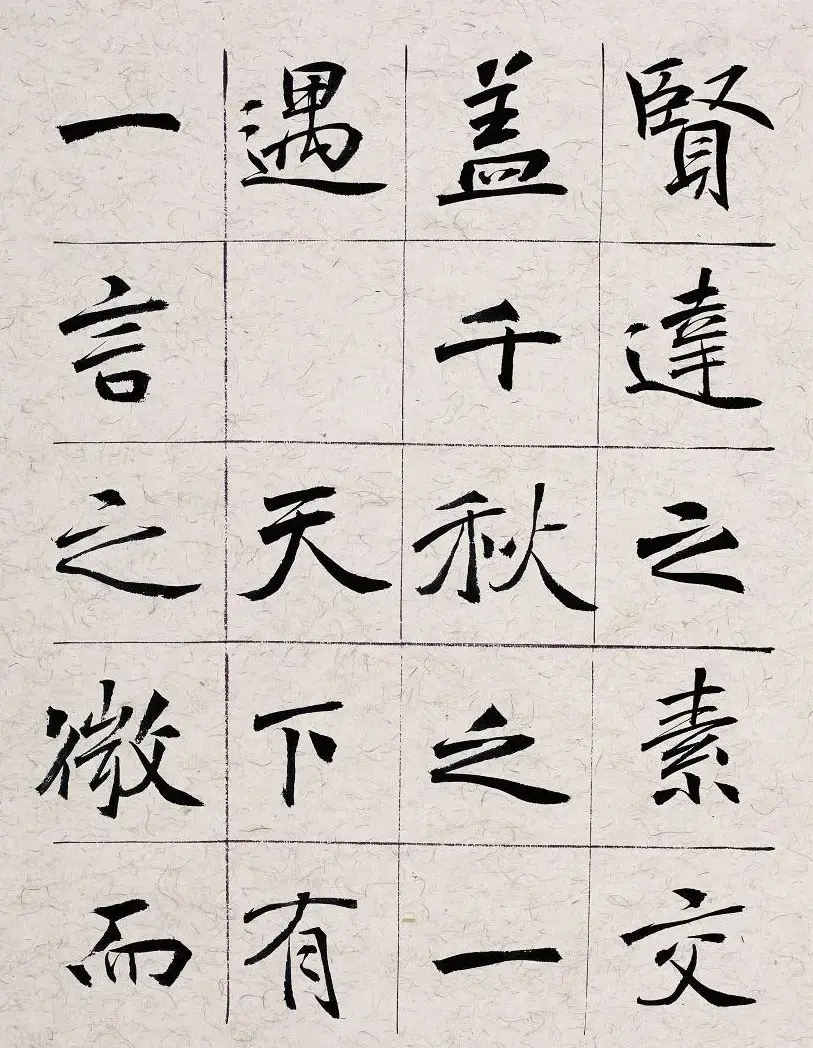 賢達之素交
盖千秋之一
遇 天下有
一言之微而